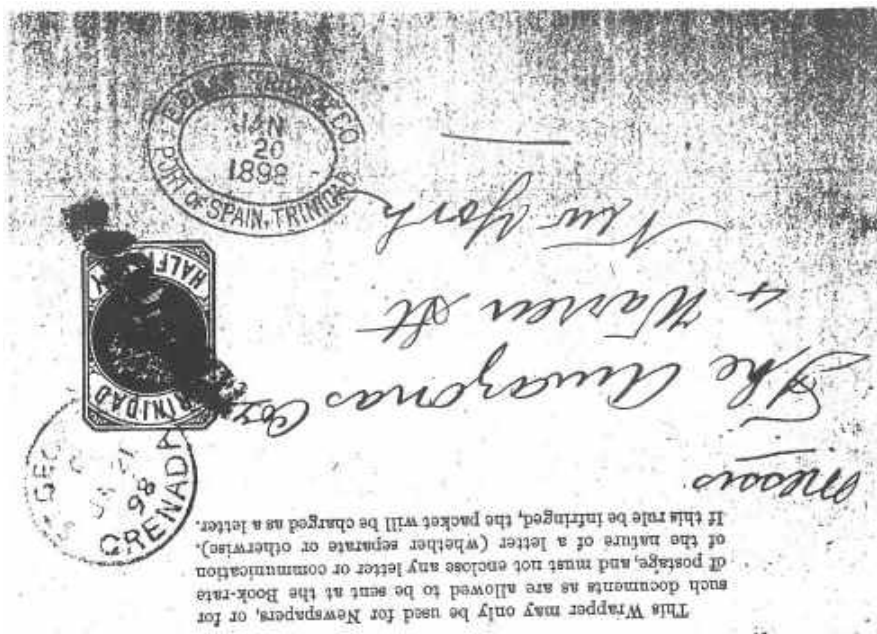 This Wrapper may only be used for Newspapers, or for
such documents as are allowed to be sent at the Book-rate
of postage, and must not enclose any letter or communication
of the nature of a letter (whether separate or otherwise).
If this rule be infringed, the packet will be charged as a letter.
Messrs
The Amazonas Co
4 Warren St
New York
TRINIDAD
EDGAR TRIPP & CO.
JAN
20
1898
PORT OF SPAIN, TRINIDAD
21
98
GRENADA